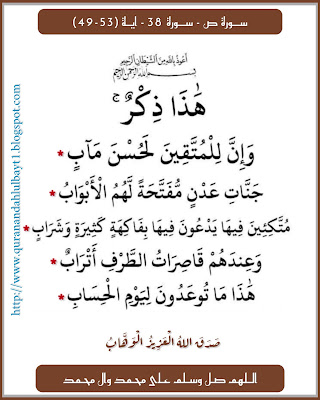 سورة ص - سورة 38 - اية (53-49)
أعوذ بالله من الشيطان الرجيم
بسم الله الرحمن الرحيم
هَٰذَا ذِكْرٌ ۚ
وَإِنَّ لِلْمُتَّقِينَ لَحُسْنَ مَآبٍ *
جَنَّاتِ عَدْنٍ مُّفَتَّحَةً لَّهُمُ الْأَبْوَابُ *
مُتَّكِئِينَ فِيهَا يَدْعُونَ فِيهَا بِفَاكِهَةٍ كَثِيرَةٍ وَشَرَابٍ *
وَعِندَهُمْ قَاصِرَاتُ الطَّرْفِ أَتْرَابٌ *
هَٰذَا مَا تُوعَدُونَ لِيَوْمِ الْحِسَابِ *
صَدَقَ اللهُ الْعَزِيزُ الْوَهَّابُ
اللهم صل وسلم على محمد وال محمد
http://www.quranandahlulbayt1.blogspot.com